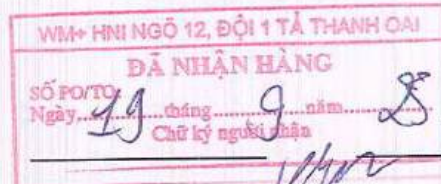 WM+ HNI NGÕ 12, ĐỘI 1 TẢ THANH OAI
ĐÃ NHẬN HÀNG
SỐ PO/TO
Ngày 19 tháng 9 năm 25
Chữ ký người nhận